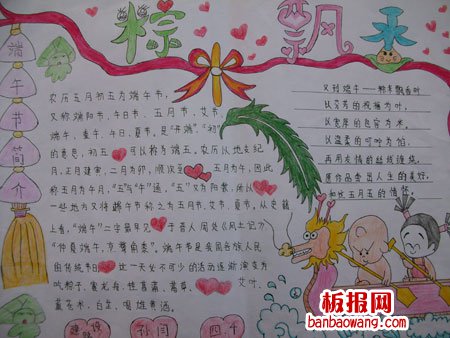 粽飘香
端午节简介
农历五月初五为端午节,
又称端阳节、午日节、五月节、艾节、
端午、重午、午日、夏节,是"开端"、"初"
的意思,初五可以称为端五。农历以地支纪
月,正月建寅,二月为卯,顺次至五月为午,因此
称五月为午月,"五"与"午"通,"五"又为阳数,所以
一些地方又将端午节称之为五月节、艾节、夏节。从史籍
上看,"端午"二字最早见于晋人周处《风土记》
"仲夏端午,烹鹜角黍"。端午节是我国各族人民
的传统节日,这一天必不可少的活动逐渐演变为
吃粽子,赛龙舟,挂菖蒲、蒿草、艾叶,
薰苍术、白芷,喝雄黄酒。
又到端午——粽子飘香时
以芬芳的祝福为叶,
以宽厚的包容为米,
以温柔的叮咛为馅,
再用友情的丝线缠绕,
愿你品尝出人生的美好,
和这五月五的情怀。
孙闫
四.1
板报网
banbaowang.com